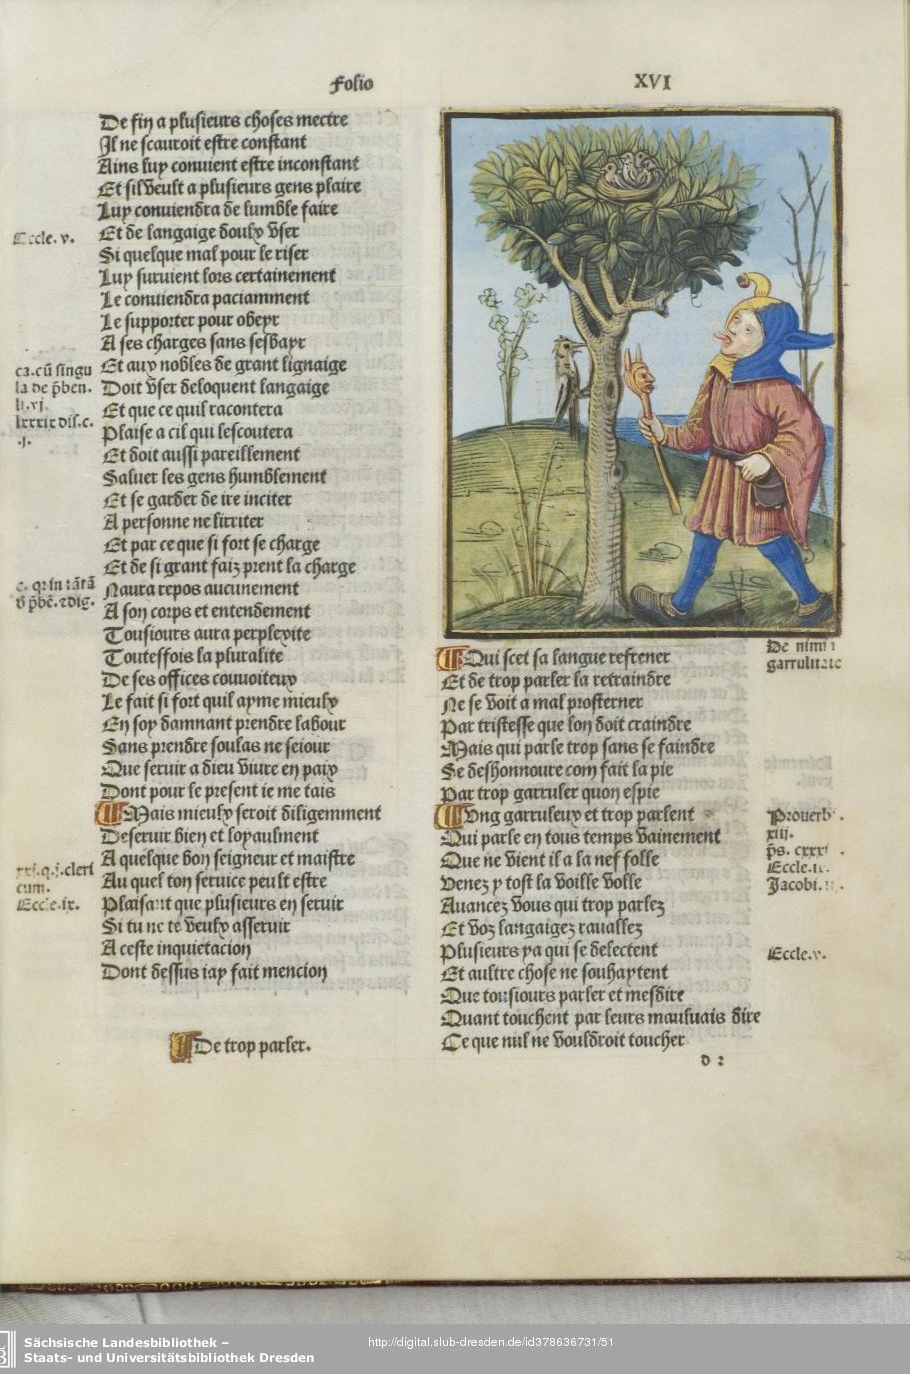 Folio
XVI
De fin a plusieurs choses mectre
Il ne scauroit estre constant
Ains luy convient estre inconstant
Et sil veult a plusieurs gens plaire
Luy conviendra de lumble faire
Et de langaige doulx vser
Si quelque mal pour le riser
Luy survient lors certainement
Le conviendra paciamment
Le supporter pour obeyr
A ses charges sans sesbayr
Et aux nobles de grant lignaige
Doit vser deloquent langaige
Et que ce quil racontera
Plaise a cil qui lescoutera
Et doit aussi pareillement
Saluer les gens humblement
Et se garder de ire inciter
A personne ne lirriter
Et par ce que si fort se charge
Et de si grant faiz prent la charge
Naura repos aucunement
A son corps et entendement
Tousiours aura perplexite
Touteffois la pluralite
De ses offices couvoiteux
Le fait si fort quil ayme mieulx
En soy damnant prendre labour
Sans prendre soulas ne seiour
Que servir a dieu vivre en paix
Dont pour le present ie me tais
Mais mieulx seroit diligemment
Deservir bien et loyaulment
A quelque bon seigneur et maistre
Au quel ton service peult estre
Plaisant que plusieurs en servir
Si tu ne te veulx asservir
A ceste inquietacion
Dont dessus iay fait mencion
De trop parler.
Eccle. v.
ca.cū singu
la de p̄ben.
li.vj
lxxxix dis.c.
.j.
c. qr in tātā
d̄ p̄bē. ⁊ dig.
xxj.q.j.cleri
cum.
Eccle.ix.
Qui scet sa langue refrener
Et de trop parler la retraindre
Ne se voit a mal prosterner
Par tristesse que lon doit craindre
Mais qui parle trop sans se faindre
Se deshonnoure com fait la pie
Par trop garruler quon espie
Vng garruleux et trop parlent
Qui parle en tous temps vainement
Que ne vient il a la nef folle
Venez y tost la voille volle
Avancez vous qui trop parlez
Et voz langaigez ravallez
Plusieurs ya qui se delectent
Et aultre chose ne souhaytent
Que tousiours parler et mesdire
Quant touchent par leurs maulvais dire
Ce que nul ne vouldroit toucher
d 2
De nimi
garrulitate
Proverb.
xiij.
p̄s. cxxxi
Eccle.
Jacobi.
Eccle.v.
Sächsische Landesbibliothek –
Staats- und Universitätsbibliothek Dresden
http://digital.slub-dresden.de/id378636731/51